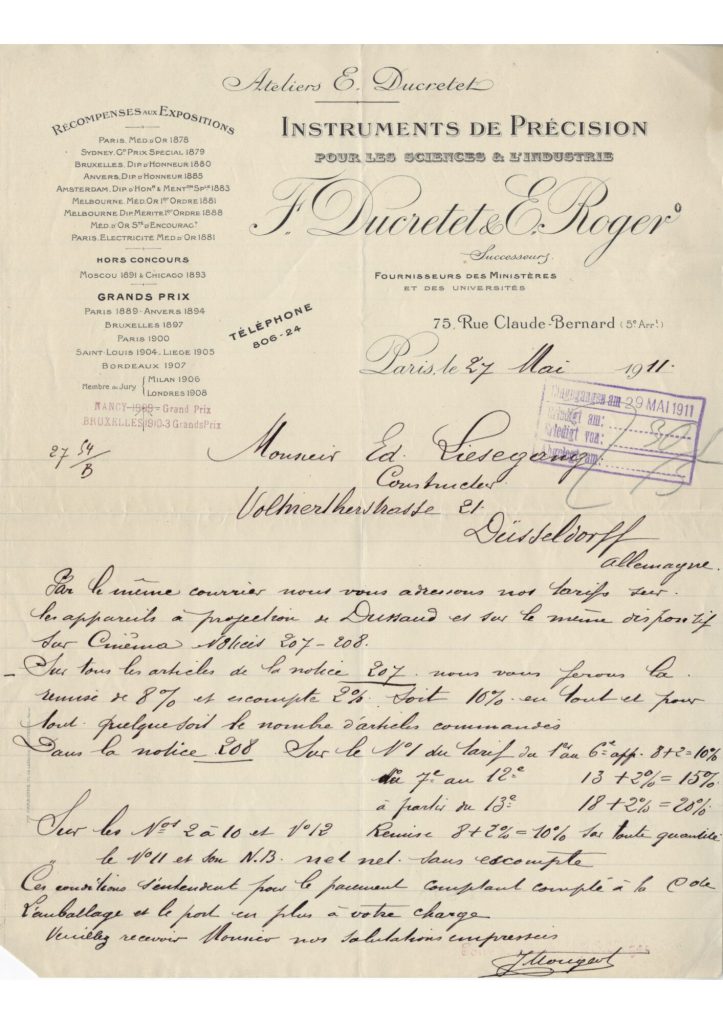 Ateliers E. Ducretet
RECOMPENSES AUX EXPOSITIONS
PARIS. MED. D'OR 1878
SYDNEY. Gᴅ PRIX SPECIAL 1879
BRUXELLES. DIP. D'HONNEUR 1880
ANVERS. DIP. D'HONNEUR 1885
AMSTERDAM. DIP. D'HONᴿ & MENTᴼᴺ SPᴸᴱ 1883
MELBOURNE. MED. OR 1ᴱᴿ ORDRE 1881
MELBOURNE DIP. MÉRITE. 1ᴱᴿ ORDRE 1888
MED. D'OR Sᵀᴱ D'ENCOURAGᵀ
PARIS. ELECTRICITÉ MED. D'OR 1881
HORS CONCOURS
MOSCOU 1891 & CHICAGO 1893
GRANDS PRIX
PARIS 1889 - ANVERS 1894
BRUXELLES 1897
PARIS 1900
SAINT-LOUIS 1904. LIEGE 1905
BORDEAUX 1907
Membre du Jury { MILAN 1906
LONDRES 1908
NANCY-1909 = Grand Prix
BRUXELLES 1910-3 Grands Prix
INSTRUMENTS DE PRÉCISION
POUR LES SCIENCES & L'INDUSTRIE
F. Ducretet & E. Roger
Successeurs
FOURNISSEURS DES MINISTÈRES
ET DES UNIVERSITÉS
TÉLÉPHONE
806-24
75. Rue Claude-Bernard (5ᵉ Arrᵗ)
Paris, le 27 Mai 1911.
Eingegangen am 29 MAI 1911
Erledigt am:
Erledigt von:
27 54/B
Monsieur Ed. Liesegang
Constructeur
Volmertherstrasse 21.
Düsseldorff
Allemagne.
Par le même courrier nous vous adressons nos tarifs sur
les appareils à projection de Dussaud et sur le même dispositif
sur Cinéma Notices 207-208.
Sur tous les articles de la notice 207. nous vous ferons la
remise de 8% et escompte 2%. Soit 10% en tout et pour
tout. quelque soit le nombre d'articles commandés
Dans la notice 208 Sur le N°1 du tarif du 1er au 6e app. 8+2=10%
du 7e au 12e 13 +2%= 15%
à partir du 13e 18+2%= 20%
Sur les Nos 2 à 10 et N°12 Remise 8+2%=10% sur toute quantité
" le N°11 et son N.B. net net. sans escompte
Ces conditions s'entendent pour le paiement comptant compté à la Cde
L'emballage et le port en plus à votre charge
Veuillez recevoir Monsieur nos salutations empressées
J Mougeot